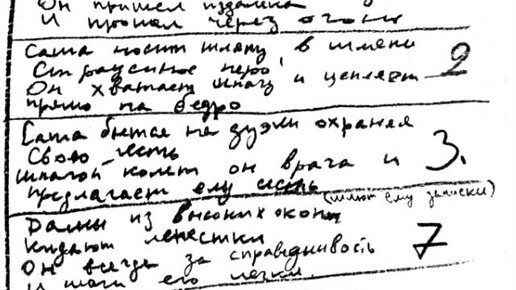 Он пришел издалека
И пропал через огонь
Саша носит шляпу, в шляпе
Страусиное перо,
Он хватает шпагу и цепляет 2
прямо на бедро
Саша бьется на дуэли охраняя
Свою честь
шпагой колет он врага и 3.
предлагает ему сесть
(шлют ему записки)
Дамы из высоких окон
кидают лепестки 7
Он всегда за справедливость
И шаги его легки.